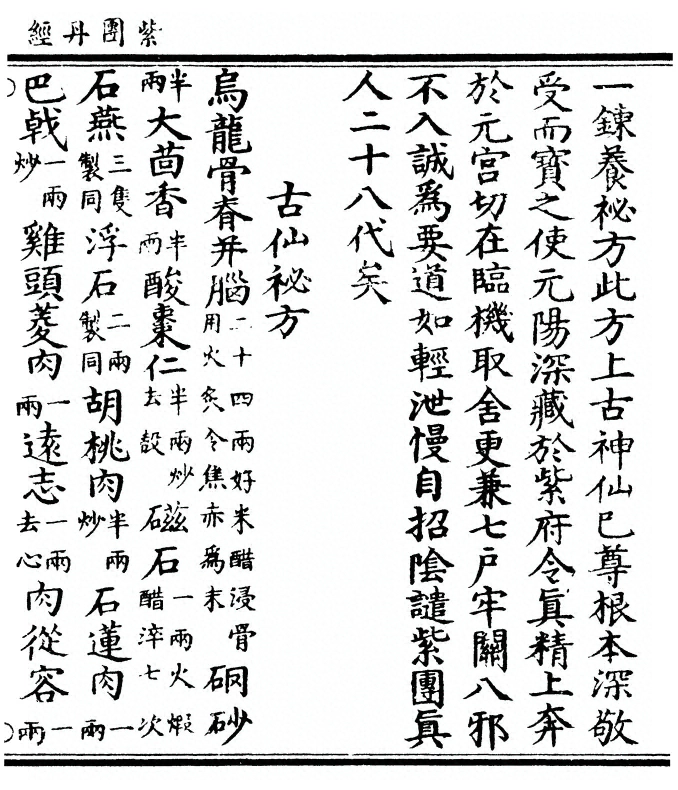 紫團丹經
一鍊養祕方此方上古神仙已尊根本深敬
受而寶之使元陽深藏於紫府令眞精上奔
於元宮切在臨機取舍更兼七戶牢關八邪
不入誠爲要道如輕泄慢自招陰譴紫團眞
人二十八代矣
古仙祕方
烏龍骨脊并腦二十四兩好米醋浸骨用火炙令焦赤爲末硐砂
半兩大茴香半兩酸棗仁半兩炒去殼磁石一兩火煅醋淬七次
石燕三隻製同浮石二兩製同胡桃肉半兩炒石蓮肉一兩
巴戟一兩炒雞頭菱肉一兩遠志一兩去心肉從容一兩